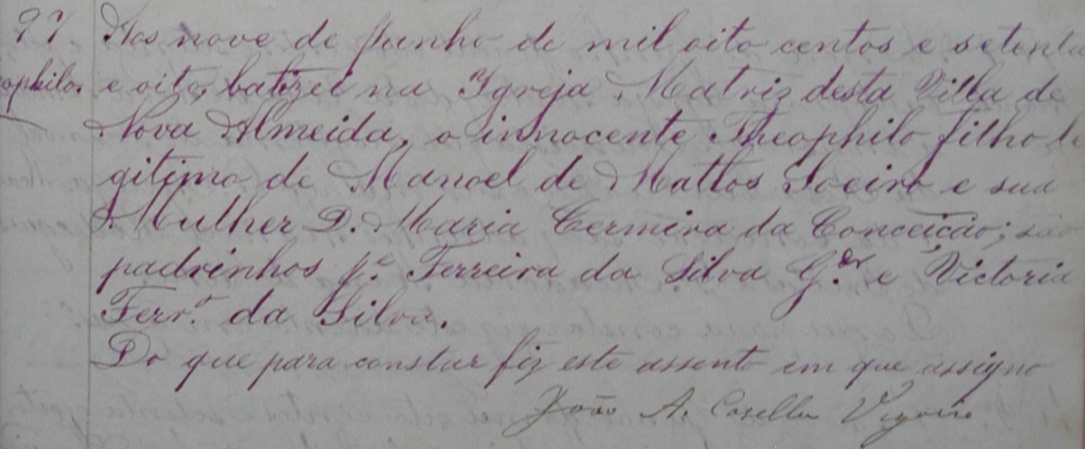 97. Aos nove de Junho de mil oito centos e setenta
ophilo. e oito, batizei na Igreja Matriz desta Villa de
Nova Almeida, o innocente Theophilo filho le
gitimo de Manoel de Mattos Loeiro e sua
Mulher D. Maria Cermira da Conceição; são
padrinhos Je. Ferreira da Silva G.der e Victoria
Ferr.a da Silva.
Do que para constar fiz este assento em que assigno
João A. Casella Vigario